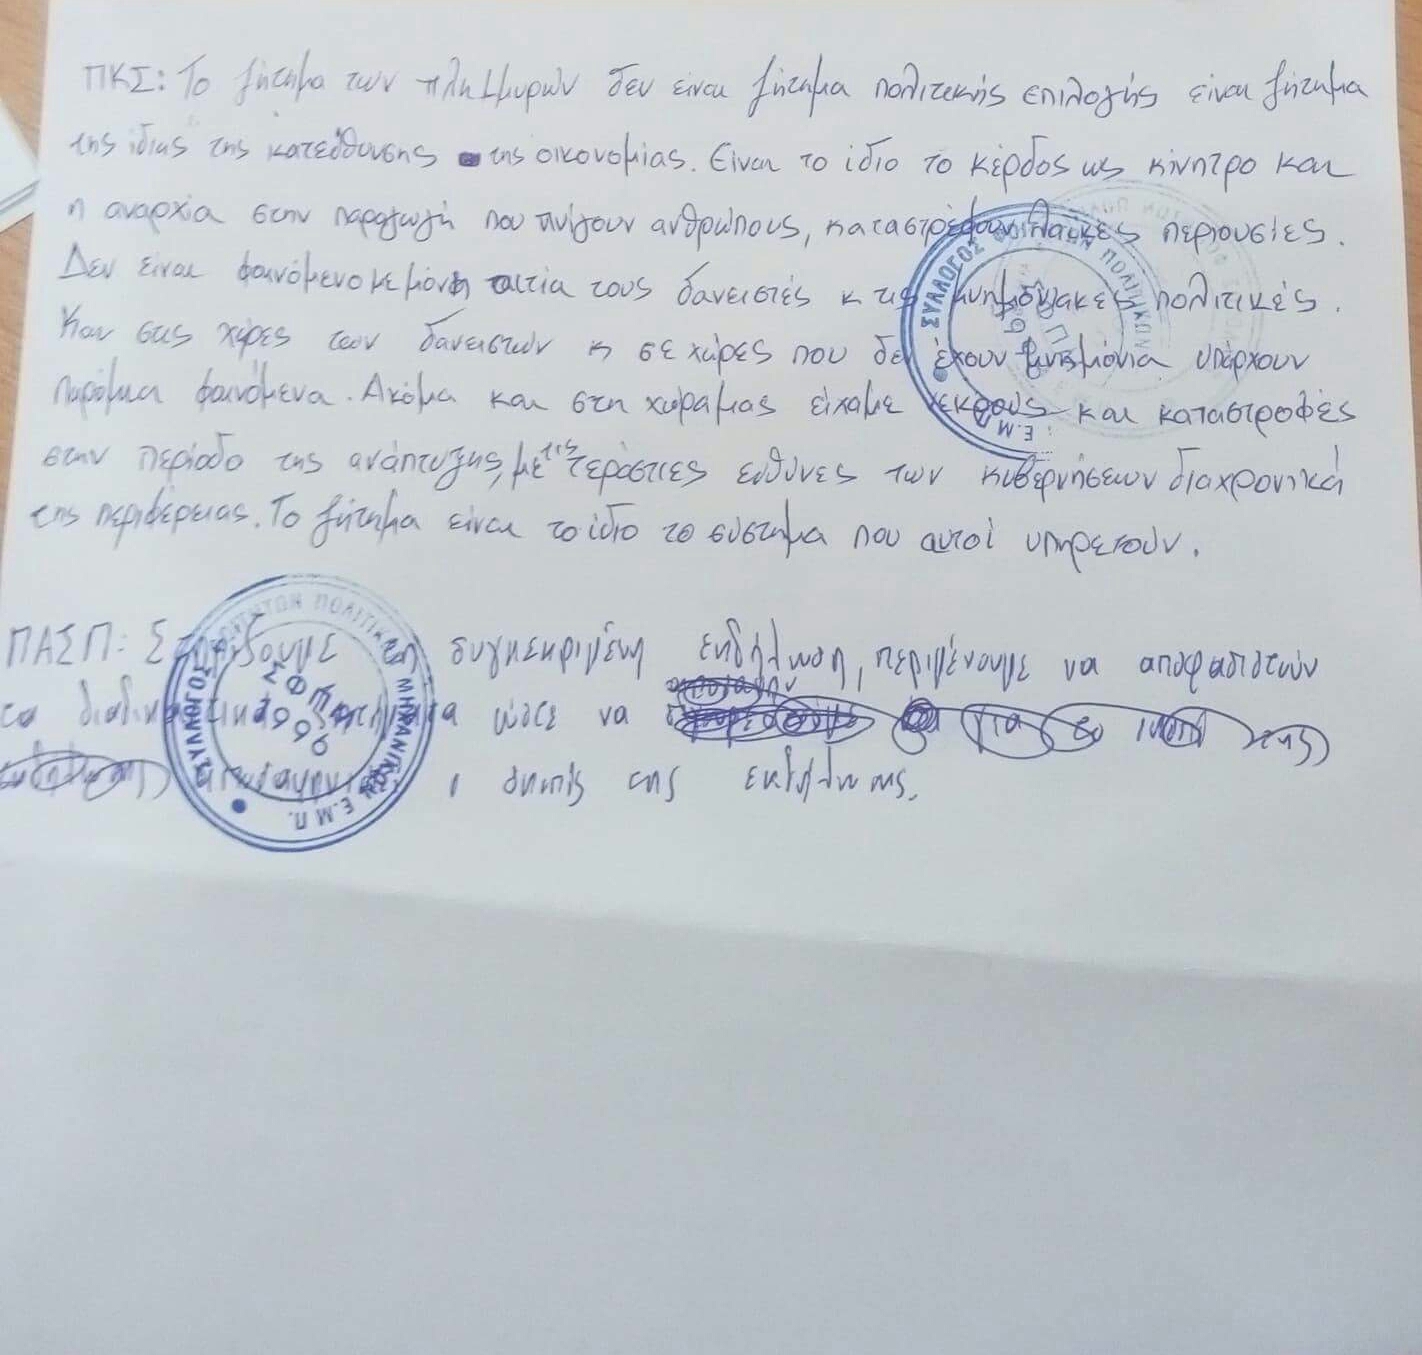 ΠΚΣ: Το ζήτημα των πλημμυρών δεν είναι ζήτημα πολιτικής επιλογής είναι ζήτημα
της ίδιας της κατεύθυνσης της οικονομίας. Είναι το ίδιο το κέρδος ως κίνητρο και
η αναρχία στην παραγωγή που πνίγουν ανθρώπους, καταστρέφουν λαϊκές περιουσίες.
Δεν είναι φαινόμενο με μόνη αιτία τους δανειστές κ τις μνημονιακές πολιτικές.
Και στις χώρες των δανειστών κ σε χώρες που δεν έχουν μνημόνια υπάρχουν
παρόμοια φαινόμενα. Ακόμα και στη χώρα μας είχαμε νεκρούς και καταστροφές
στην περίοδο της ανάπτυξης, με τις τεράστιες ευθύνες των κυβερνήσεων διαχρονικά
της περιφέρειας. Το ζήτημα είναι το ίδιο το σύστημα που αυτοί υπηρετούν.
ΠΑΣΠ: Στηρίζουμε τη συγκεκριμένη εκδήλωση, περιμένουμε να αποφασιστούν
τα διαδικαστικά ζητήματα ώστε να
της εκδήλωσης.
ΣΥΛΛΟΓΟΣ ΦΟΙΤΗΤΩΝ ΠΟΛΙΤΙΚΩΝ
Ε.Μ.Π.
ΣΥΛΛΟΓΟΣ ΦΟΙΤΗΤΩΝ ΠΟΛΙΤΙΚΩΝ ΜΗΧΑΝΙΚΩΝ Ε.Μ.Π.
1996